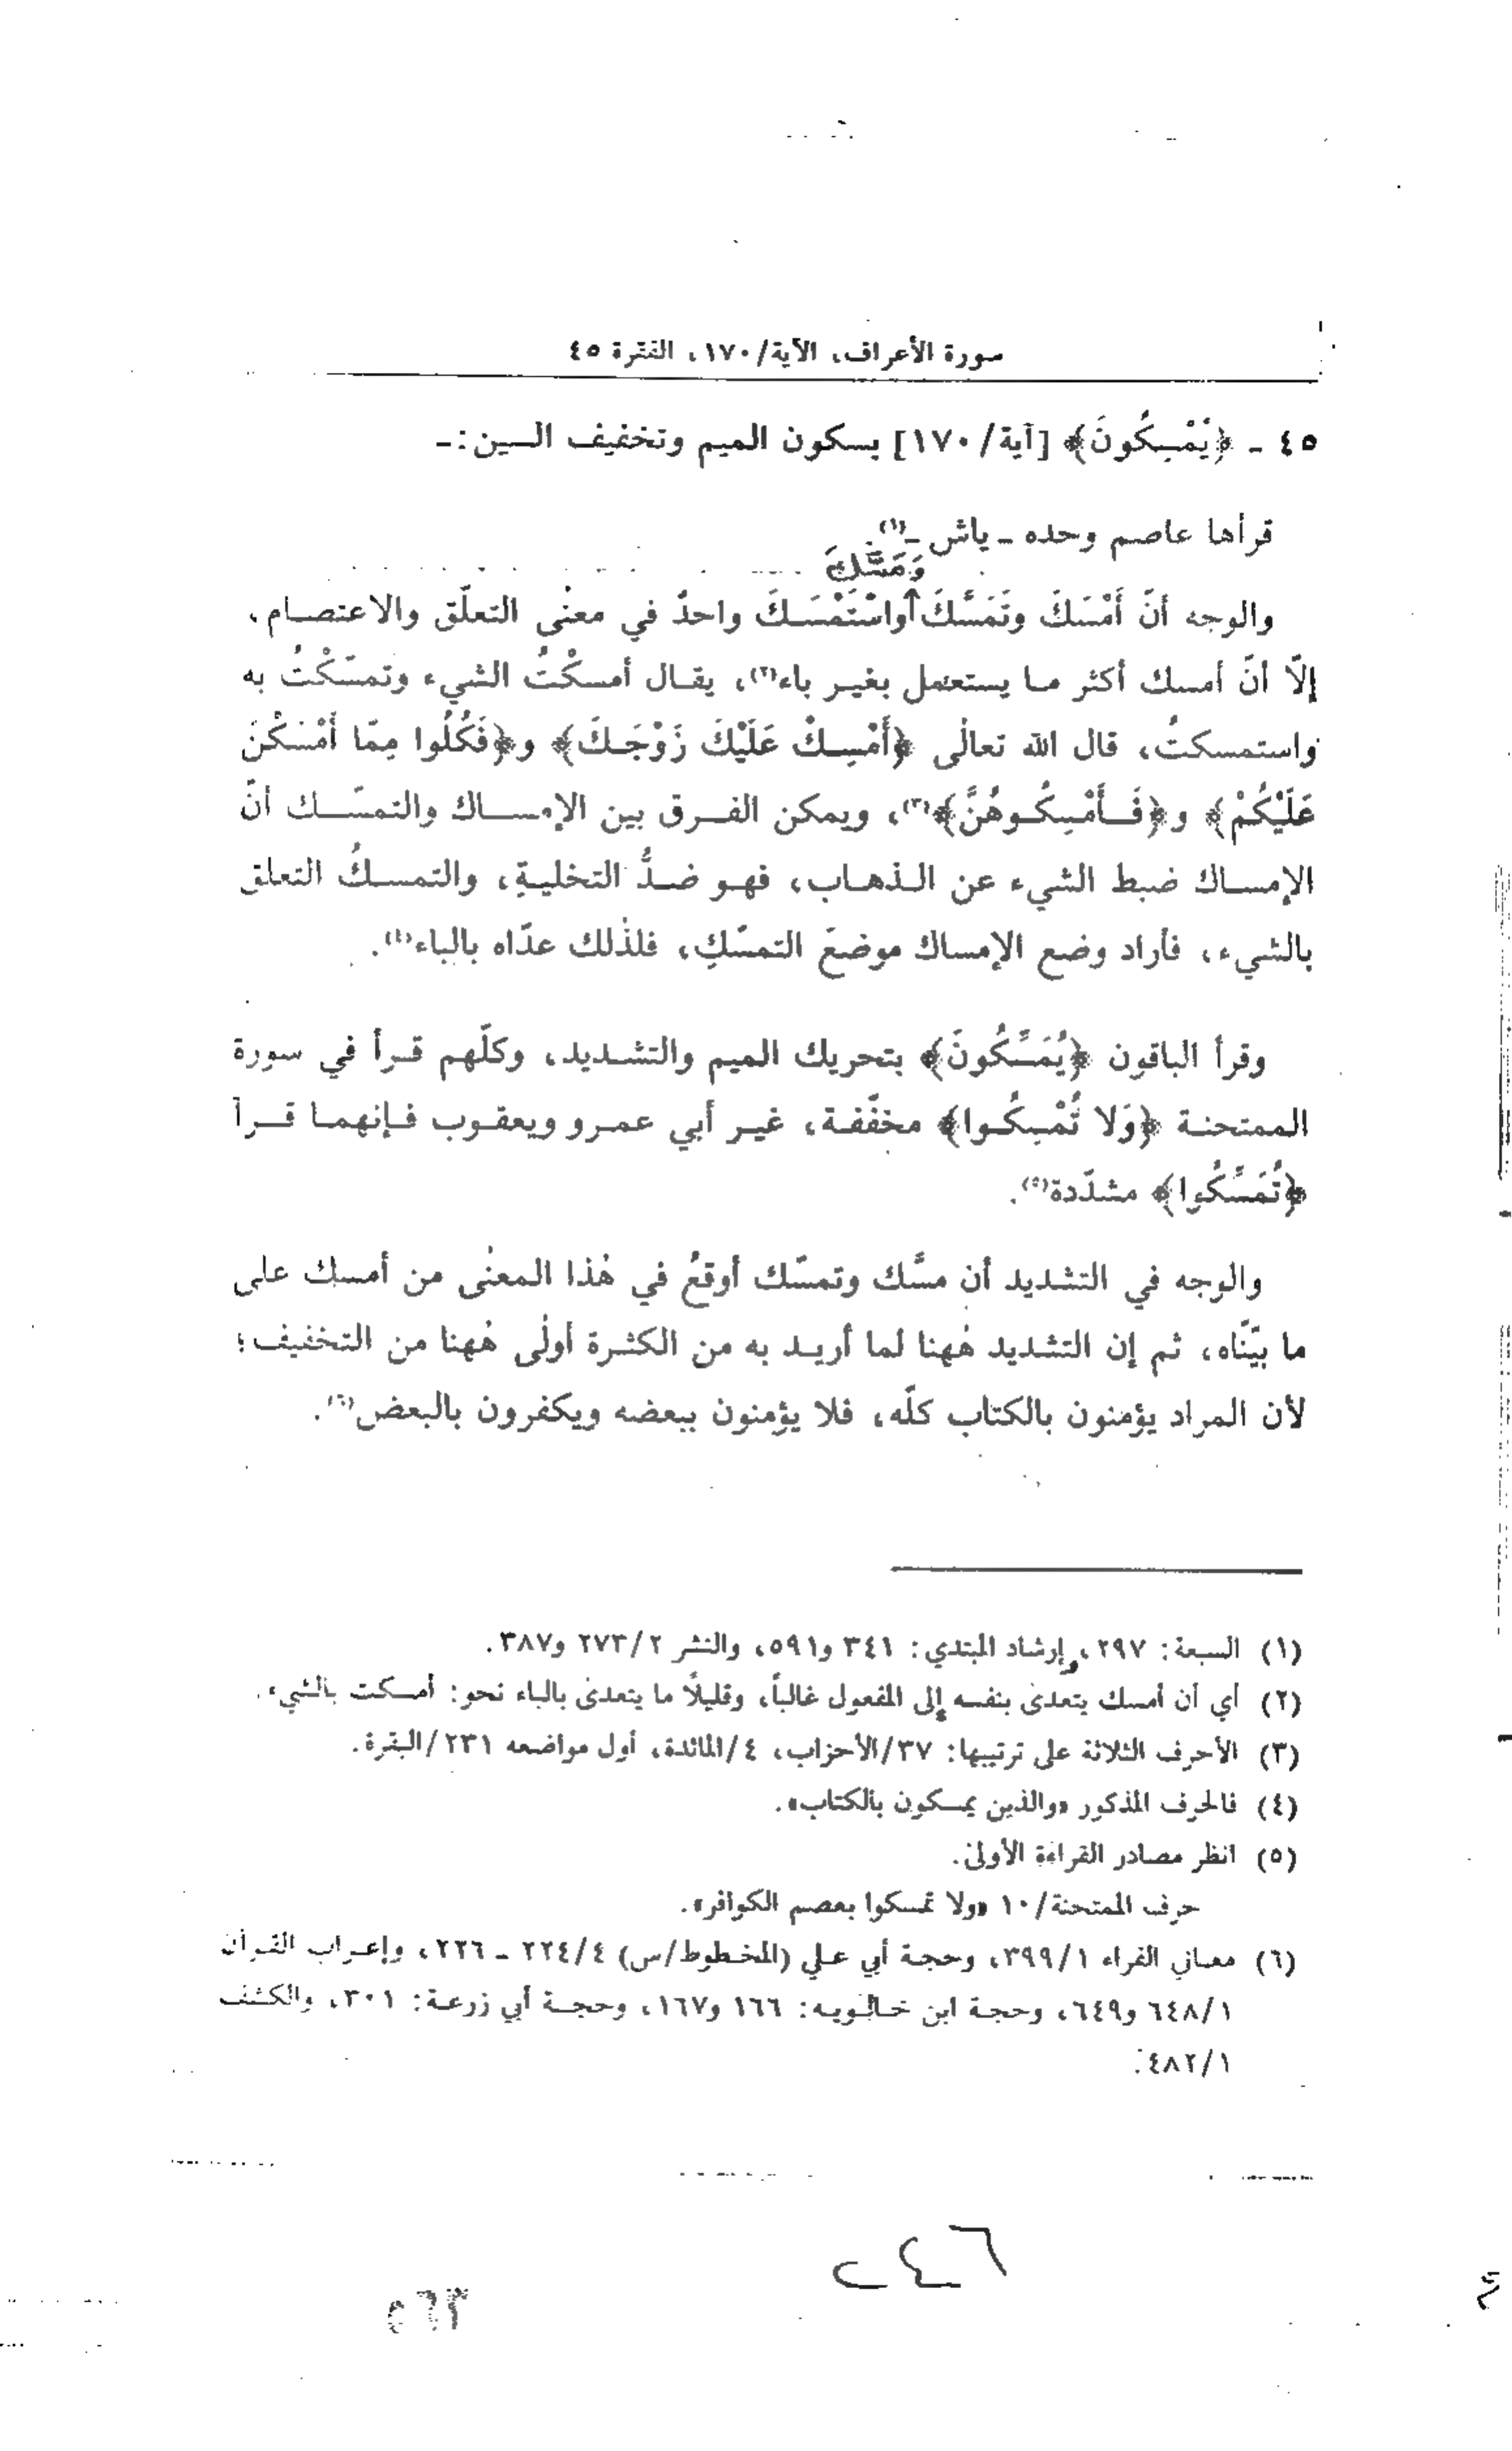 سورة الأعراف، الآية/١٧٠، الفقرة ٤٥
٤٥ ـ ﴿يُمْسِكُونَ﴾ [آية/١٧٠] بسكون الميم وتخفيف السين:ـ
قرأها عاصم وحده ـ ياش ـ(١).
وَمَسَّكَ
والوجه أنّ أَمْسَكَ وتَمَسَّكَ واسْتَمْسَكَ واحدٌ في معنٰى التعلّق والاعتصام،
إلّا أنّ أمسك أكثر ما يستعمل بغير باء(٢)، يقال أمسكْتُ الشيء وتمسّكْتُ به
واستمسكتُ، قال الله تعالٰى ﴿أَمْسِكْ عَلَيْكَ زَوْجَكَ﴾ و﴿فَكُلُوا مِمّا أَمْسَكْنَ
عَلَيْكُمْ﴾ و﴿فَأَمْسِكُوهُنَّ﴾(٣)، ويمكن الفرق بين الإمساك والتمسّك أنّ
الإمساك ضبط الشيء عن الذهاب، فهو ضدُّ التخليةِ، والتمسكُ التعلق
بالشيء، فأراد وضع الإمساك موضعَ التمسّكِ، فلذٰلك عدّاه بالباء(٤).
وقرأ الباقون ﴿يُمَسِّكُونَ﴾ بتحريك الميم والتشديد، وكلّهم قرأ في سورة
الممتحنة ﴿وَلا تُمْسِكُوا﴾ مخفّفة، غير أبي عمرو ويعقوب فإنهما قرأ
﴿تُمَسِّكُوا﴾ مشدّدة(٥).
والوجه في التشديد أن مسَّك وتمسّك أوقعُ في هٰذا المعنٰى من أمسك على
ما بيّنّاه، ثم إن التشديد هٰهنا لما أريد به من الكثرة أولٰى هٰهنا من التخفيف؛
لأن المراد يؤمنون بالكتاب كلّه، فلا يؤمنون ببعضه ويكفرون بالبعض(٦).
(١) السبعة: ٢٩٧، وإرشاد المبتدي: ٣٤١ و٥٩١، والنشر ٢/٢٧٣ و٣٨٧.
(٢) أي أن أمسك يتعدىٰ بنفسه إلى المفعول غالباً، وقليلًا ما يتعدىٰ بالباء نحو: أمسكت بالشيء.
(٣) الأحرف الثلاثة على ترتيبها: ٣٧/الأحزاب، ٤/المائدة، أول مواضعه ٢٣١/البقرة.
(٤) فالحرف المذكور «والذين يمسكون بالكتاب».
(٥) انظر مصادر القراءة الأولىٰ.
حرف الممتحنة/١٠ «ولا تمسكوا بعصم الكوافر».
(٦) معاني الفراء ١/٣٩٩، وحجة أبي علي (المخطوط/س) ٤/٢٢٤ ـ ٢٢٦، وإعراب القرآن
١/٦٤٨ و٦٤٩، وحجة ابن خالويه: ١٦٦ و١٦٧، وحجة أبي زرعة: ٣٠١، والكشف
١/٤٨٢.
٥٦٣